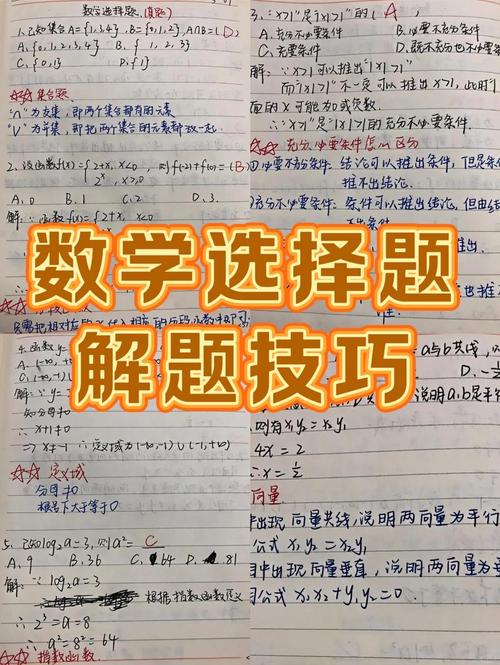 数学选择题
解题技巧
数学选择题(真题)
1.已知集合A={1,3,4},B={0,1,2},A∩B=(D)
A.{0,1,2,3,4} B.{ 1,2,3}
C.{0,1} D.{1}
☆☆集合题
"∩"为交集,即两个集合都有的元素
"V"为并集,即把两个集合的元素都放一起.
2.设函数f(x)={2+x, x<0,
2^x, x≥0
则f(-2)+f(0)=(B)
A.0 B.1 C.2 D.3.
解:∵函数f(x)={2+x, x<0
只需把相对应的x代入相应的
4.函数y=
A.(-∞,
C.(-∞,-1)
解:∵y=
知分母≠0
∴x+1≠0
=> x≠-1 ∴定义域为(-∞,-1)∪(-1,+∞)
☆☆定义域
分母≠0
根号下大于等于0
5.已知log₂a=3,则a²= C
A.9 B.36 C.64 D.81
解:∵log₂a=3
根据指数函数定义
∴2³=a=8
∴a²=8²=64
☆☆指数函数.
3."x>1"是"|x|>1"的(A)
A.充分不必要条件 B.必要不充分条件
C.充要条件 D.既不充分也不必要
解:∵x>1可以推出"|x|>1"
而"|x|>1"不一定可以推出x>1,此时
面的x可能为正或负数.
∴"x>1"是"|x|>1"的充分不必要条件.
☆☆充分必要条件怎么区分
必要不充分条件:结论可以推出条件,但是条
推不出结论.
充分不必要条件:条件可以推出结论,但由结
不出条件.
=a与b共线,
D.-½
说明a,b是平行
则有x₁y₂=x₂y₁
4x=2
∴x=½
向量
中出现向量共线,说明两向量为平行
公式x₁y₂=x₂y₁
目中出现向量垂直,说明两向量为垂
用公式x₁x₂+y₁y₂=0.